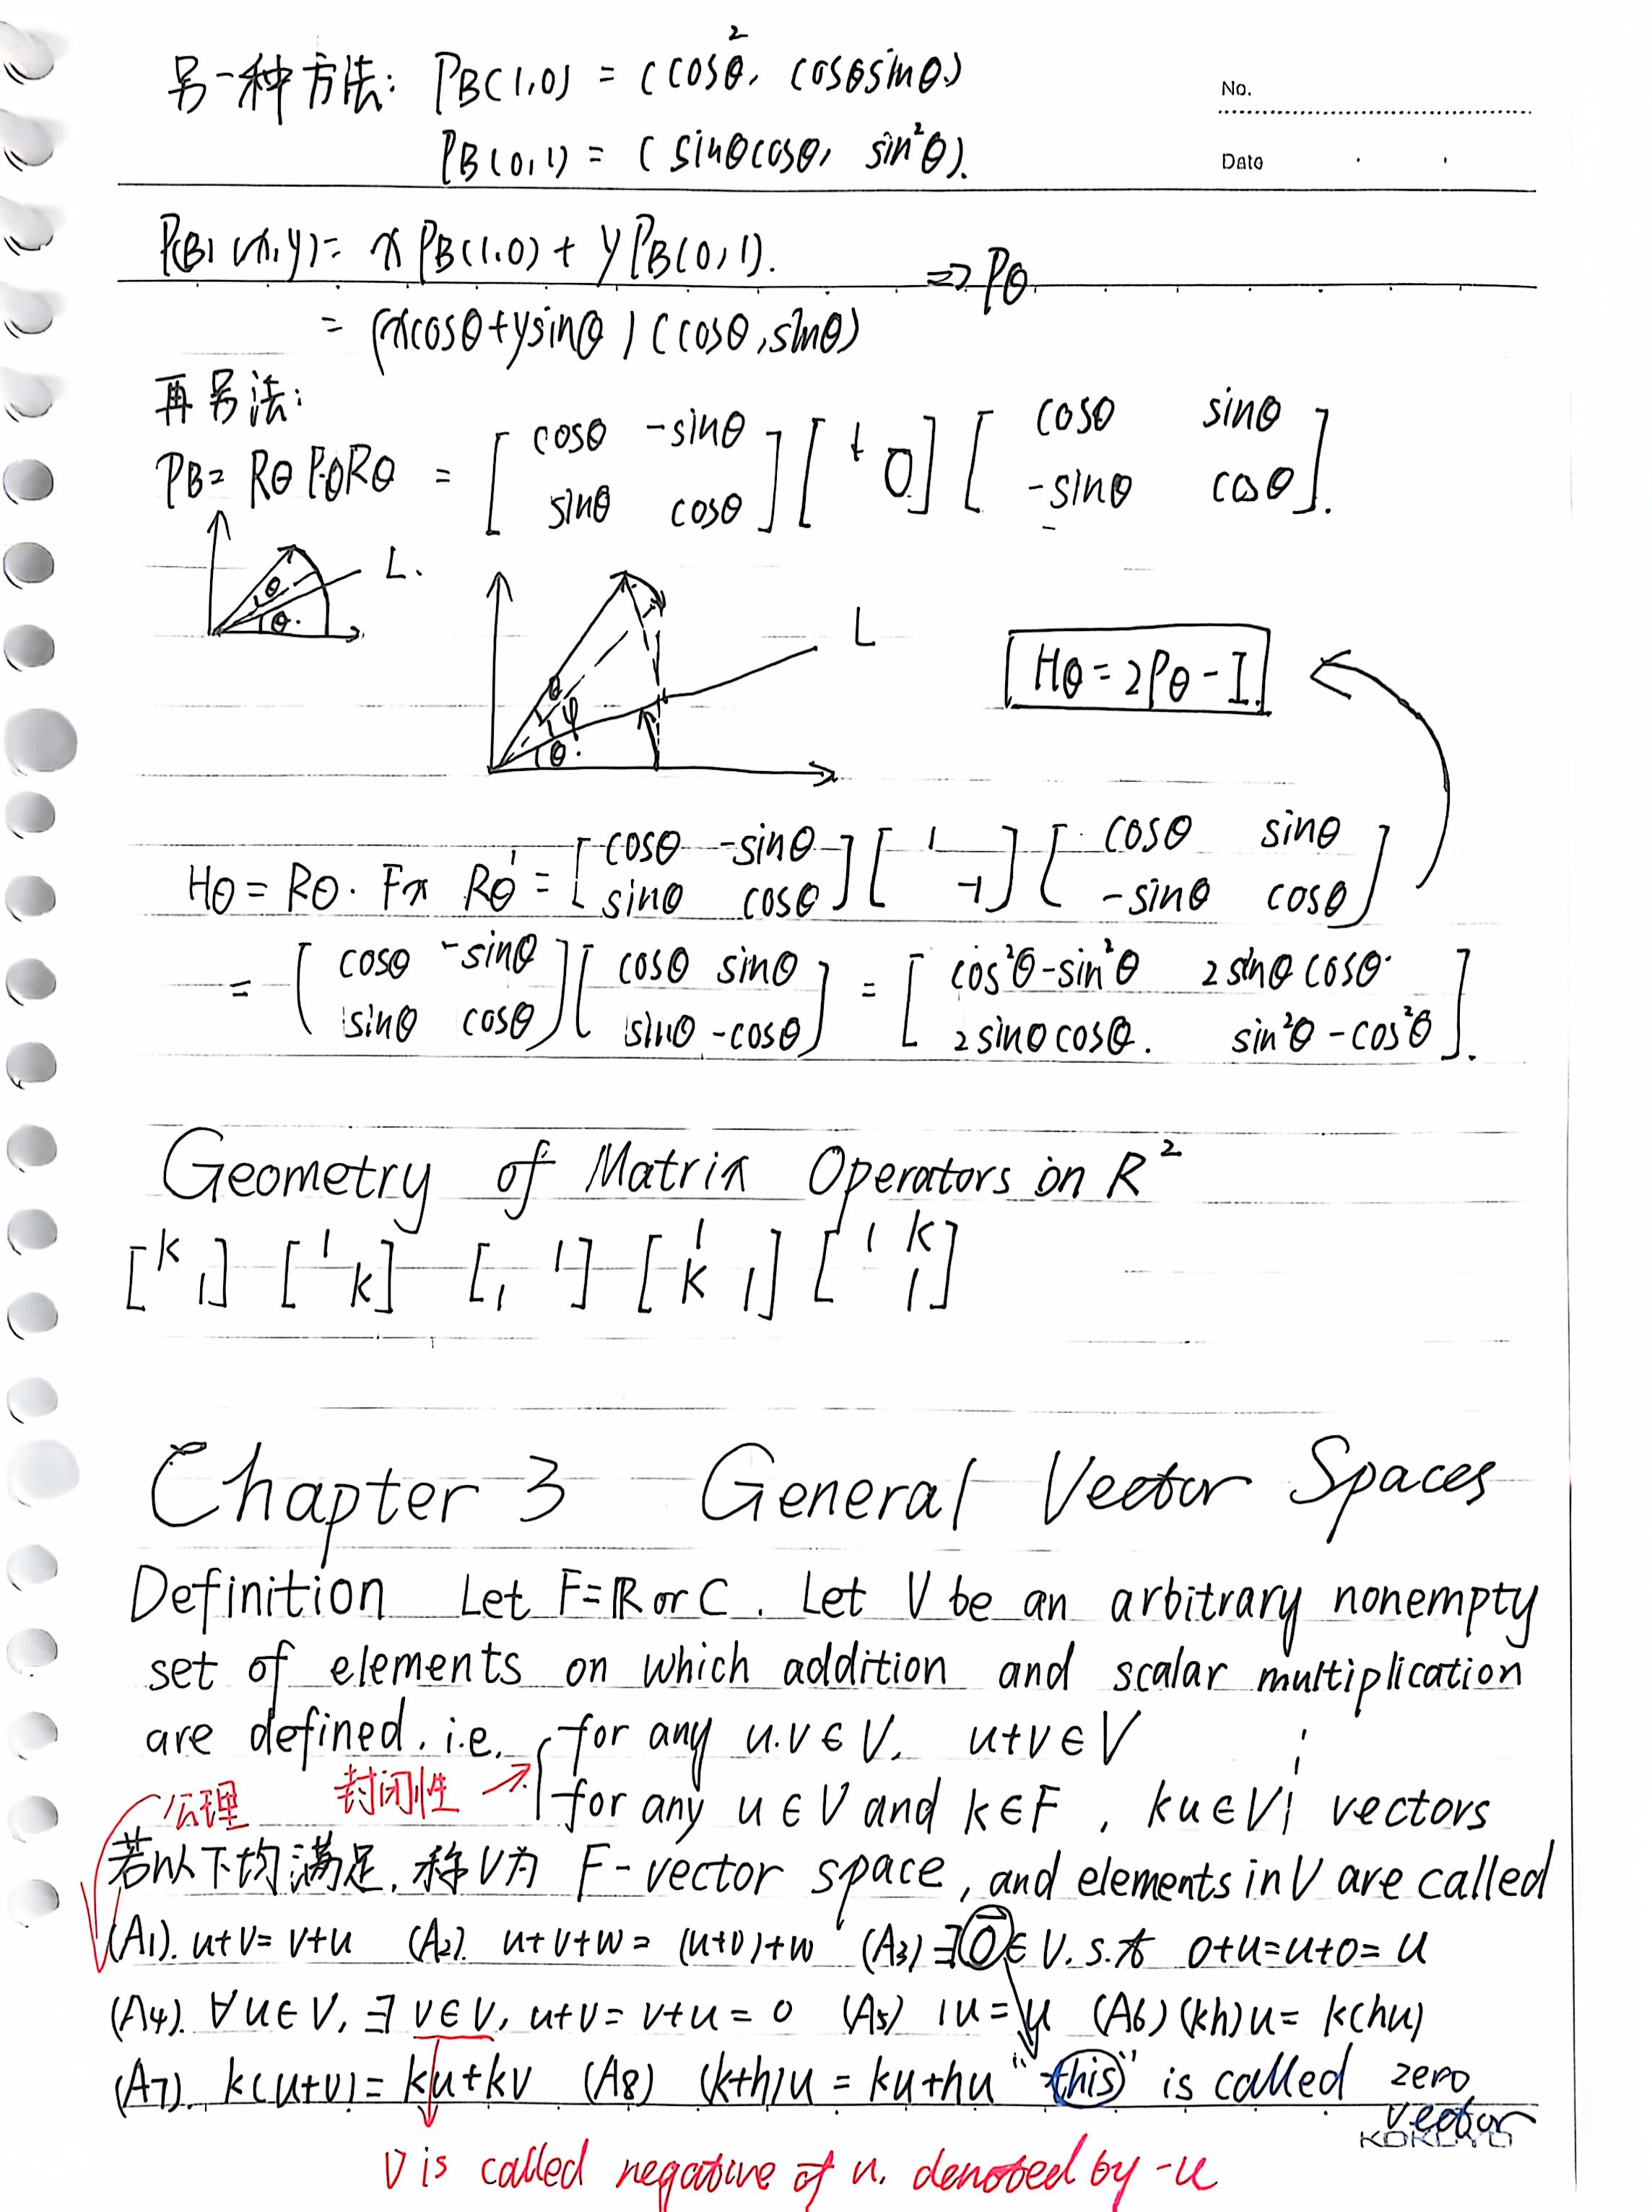 另一种方法: PB(1,0) = (cos²θ, cosθsinθ)
No.
PB(0,1) = (sinθcosθ, sin²θ).
Date
P(B)(x,y) = x PB(1,0) + y PB(0,1). ⇒ Pθ
= (xcosθ+ysinθ)(cosθ,sinθ)
再另法:
PB= Rθ P₀Rθ = [cosθ -sinθ; sinθ cosθ] [1 0] [cosθ sinθ; -sinθ cosθ].
θ θ L.
θ φ θ L
Hθ = 2Pθ - I.
Hθ = Rθ · Fx Rθ⁻¹ = [cosθ -sinθ; sinθ cosθ] [1; -1] [cosθ sinθ; -sinθ cosθ]
= [cosθ -sinθ; sinθ cosθ] [cosθ sinθ; sinθ -cosθ] = [cos²θ-sin²θ 2sinθcosθ; 2sinθcosθ. sin²θ-cos²θ].
Geometry of Matrix Operators on R²
[k; 1] [1; k] [1; 1] [1; k 1] [1 k; 1]
Chapter 3 General Vector Spaces
Definition Let F=ℝ or C. Let V be an arbitrary nonempty
set of elements on which addition and scalar multiplication
are defined. i.e. for any u.v ∈ V. u+v ∈ V
公理 封闭性 for any u ∈ V and k ∈ F, ku ∈ V; vectors
若以下均满足, 称V为 F-vector space, and elements in V are called
(A1). u+v= v+u (A2). u+v+w= (u+v)+w (A3) ∃0∈ V. s.t 0+u=u+0= u
(A4). ∀u∈V, ∃ v∈V, u+v= v+u = 0 (A5) 1u = u (A6) (kh)u= k(hu)
(A7). k(u+v)= ku+kv (A8) (k+h)u = ku+hu "this" is called zero
vector
KOKUYO
V is called negative of u. denoted by -u